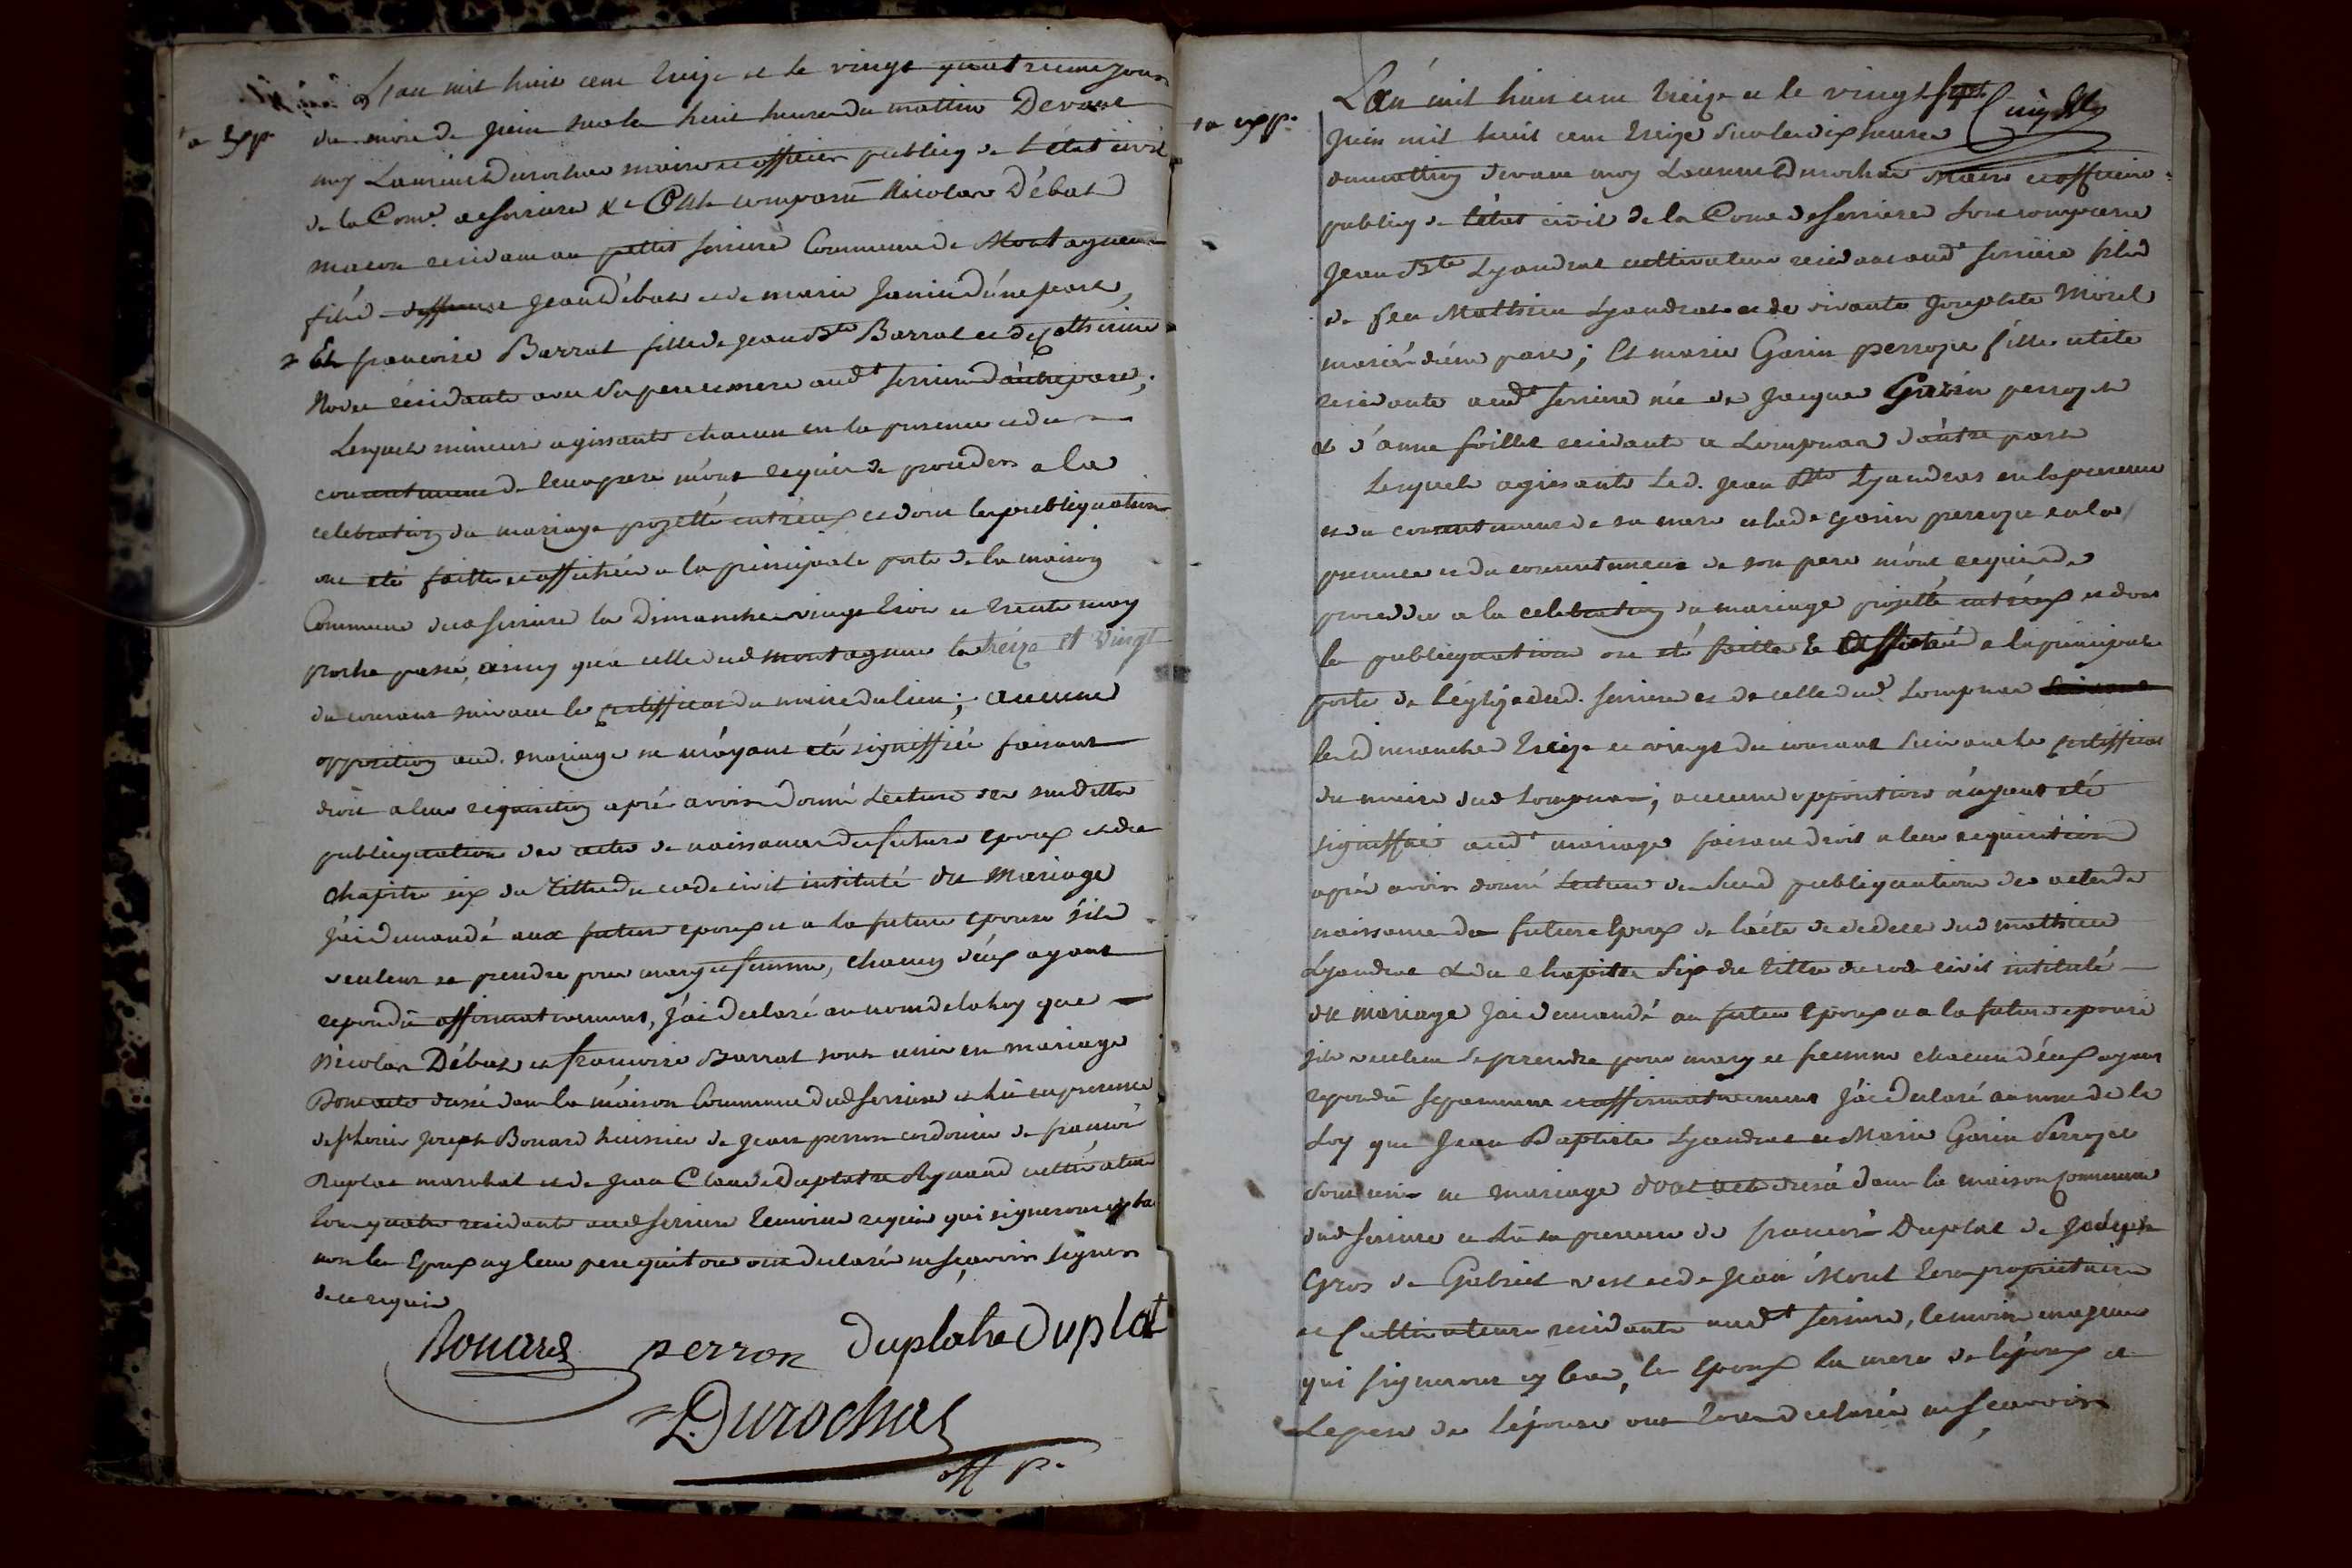 L'an mil huit cent treize et le vingt quatrieme jour
du mois de juin sur les huit heures du matin Devant
moy Laurent Durochat maire et officier publicq de l'état civil
1e Exp.
de la Come. de serriere &c Est comparu Nicolas Débat
macon residant au petit serriere Commune de Montagneu
fils de Jean Débat et de marie Janin d'une part,
Et francoise Barrat fille de jean Bte Barrat et de Catherine
residante avec ses pere et mere aud.t serriere d'autre part;
Lesquels mineurs agissants chacun en la presence et du
consentement de leur pere m'ont requis de proceder a la
celebration du mariage projetté entr'eux et dont les publiquations
ont été faittes et affichées a la principale porte de la maison
Commune dud serriere les Dimanches vingt trois et trente may
proche passé, ainsy qu'a celle dud montagneu les treize et vingt
du courant suivant le certifficat du maire du lieu; aucune
opposition aud. mariage ne m'ayant été signiffiée faisant
droit a leur requisition après avoir donné Lecture des susdittes
publiquations des actes de naissance des futurs epoux et du
chapitre six du Titre du code civil intitulé du Mariage
J'ai demandé aux futur epoux et a la future epouse s'ils
veulent se prendre pour mary et femme, chacun d'eux ayant
repondu affirmativement, j'ai declaré au nom de la loy que
Nicolas Débat et francoise Barrat sont unis en mariage
Dont acte dressé dans la maison Commune dud serriere et lu en presence
de Joseph Bouard huissier de Jean perron cordonier de francois
Duplat marechal et de Jean Claude Duplatre cultivateur
tous quatre residants aud serriere temoins requis qui signeront
non les Epoux ny leur pere qui tous ont declarés ne scavoir signer
de ce requis
Bouard perron duplatre duplat
Durochat
off p.
L'an mil huit cent treize et le vingt sept
juin mil huit cent treize sur les dix heures
1e exp.
du matin devant moy Laurent Durochat Maire et officier
publicq de l'état civil de la Come de serriere sont comparu
Jean Bte Lyaudrat cultivateur residant aud.t serriere fils
de feu Mathieu Lyaudrat et de vivante Josephte Morel
mariés d'une part; Et marie Garin perrozet fille
residante aud.t serriere née de Jacque Garin perrozet
et d'anne residants a Lompnas d'autre part
Lesquels agissants Led. Jean Bte Lyaudrat en la presence
et du consentement de sa mere et lad garin perrozet en la
presence et du consentement de son pere m'ont requis de
proceder a la celebration du mariage projetté entr'eux et dont
les publiquations ont été faittes & affichées a la principale
porte de l'églize dud. serriere et de celle dud. Lompnas
les dimanches treize et vingt du courant suivant le certifficat
du maire dud Lompnas; aucune opposition n'ayant été
signiffiée aud.t mariage faisant droit a leur requisition
après avoir donné Lecture desd publiquations des actes de
naissance des futurs Epoux de l'acte de deces dud mathieu
Lyaudrat & du chapitre six du titre du code civil intitulé
du mariage J'ai demandé au futur Epoux et a la future epouse
s'ils veulent se prendre pour mary et femme chacun d'eux ayant
repondu separement et affirmativement J'ai declaré au nom de la
Loy que Jean Baptiste Lyaudrat et Marie Garin Perrozet
sont unis en mariage dont acte dressé dans la maison Commune
dud serriere et lu en presence de francois Duplat de Joseph
Gros de Gabriel et de Jean Morel tous proprietaires
et Cultivateurs residants aud.t serriere, temoins majeurs
qui signeront les Epoux la mere de l'époux et
Le pere de l'épouse ont tous declarés ne scavoir